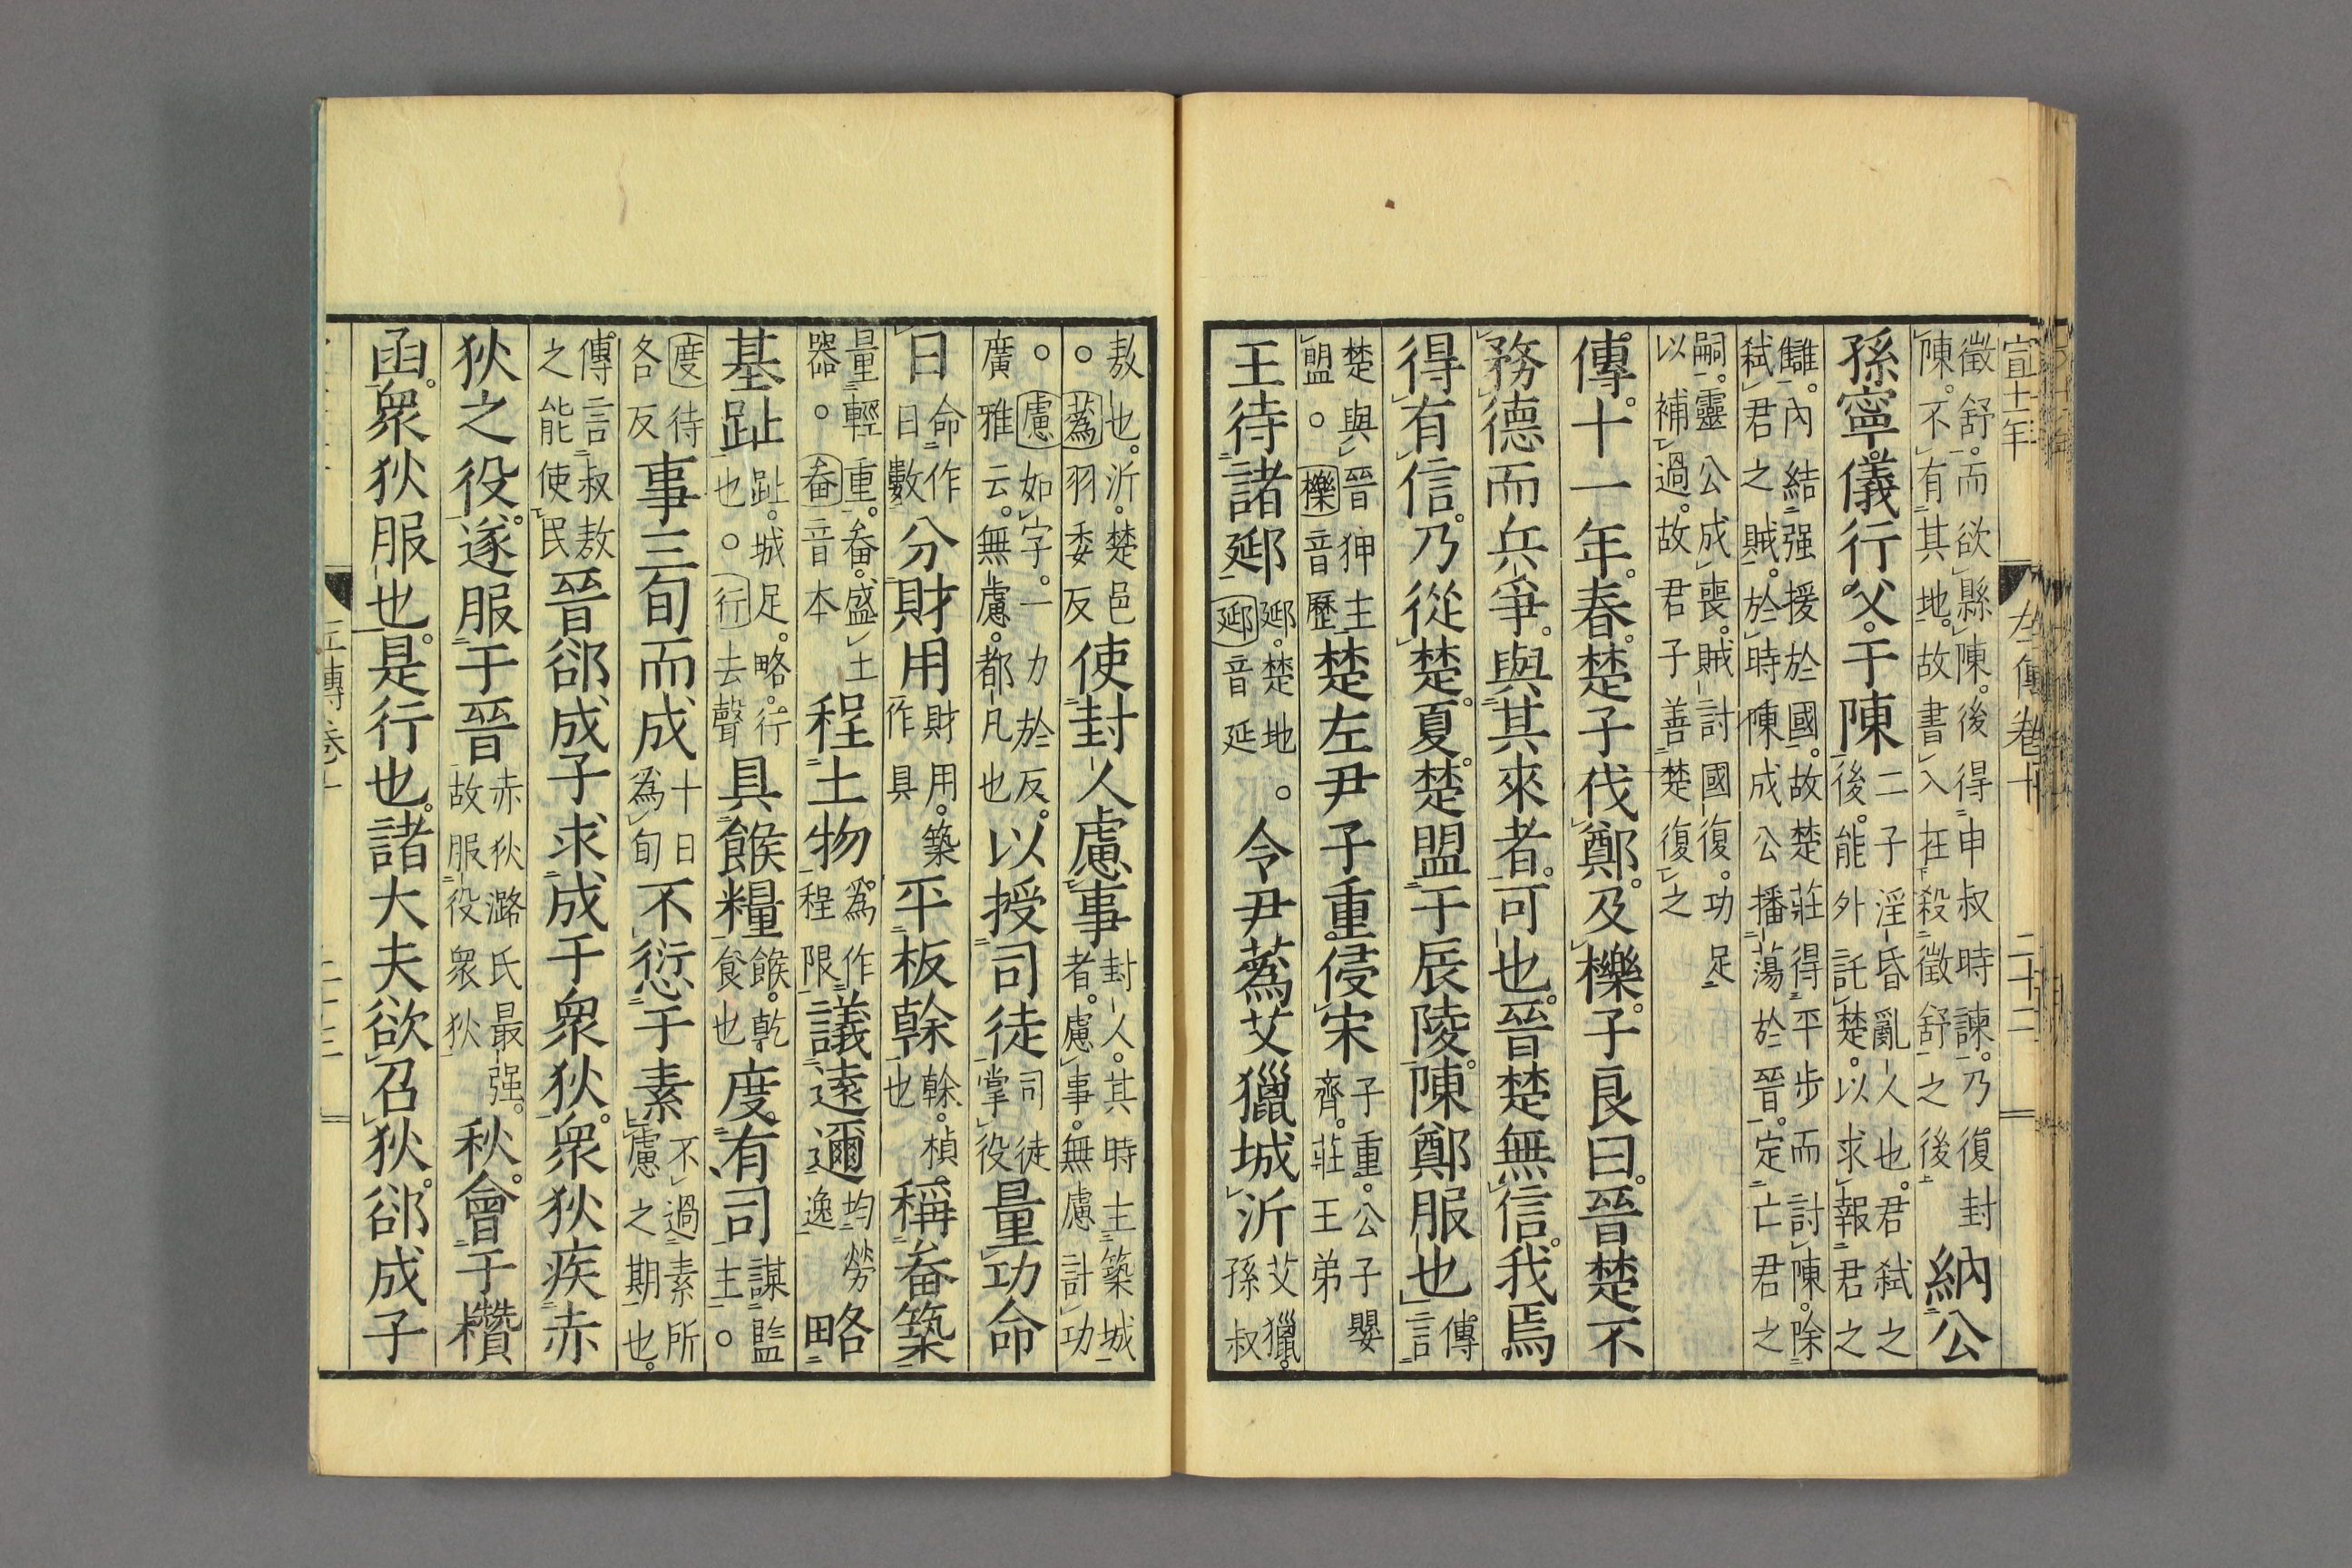 宣十一年　左傳卷十　二十二
徵舒。而欲縣陳。後得申叔時諫。乃復封陳。不有其地。故書入在殺徵舒之後納公
孫寧。儀行父。于陳二子淫昏亂人也。君弒之後。能外託楚。以求報君之
讎。內結强援於國。故楚莊得平步而討陳。除弒君之賊。於時陳成公播蕩於晉。定亡君之
嗣。靈公成喪。賊討國復。功足以補過。故君子善楚復之
傳。十一年。春。楚子伐鄭。及櫟。子良曰。晉楚不
務德而兵爭。與其來者。可也。晉楚無信。我焉
得有信。乃從楚。夏。楚盟于辰陵。陳鄭服也傳言
楚與晉狎主盟。櫟音歷楚左尹子重侵宋子重。公子嬰齊。莊王弟
王待諸郔郔。楚地。郔音延令尹蔿艾獵城沂艾獵。孫叔
敖也。沂。楚邑。蔿羽委反使封人慮事封人。其時主築城者。慮事。無慮計功
。慮如字。一力於反。廣雅云。無慮。都凡也以授司徒司徒掌役量功命
日命作日數分財用財用。築作具平板榦榦。楨也稱畚築
量輕重。畚。盛土器。畚音本程土物爲作程限議遠邇均勞逸略
基趾趾。城足。略。行也。行去聲具餱糧餱。乾食也度有司謀監主。
度待各反事三旬而成十日爲旬不愆于素不過素所慮之期也。
傳言叔敖之能使民晉郤成子求成于衆狄。衆狄疾赤
狄之役。遂服于晉赤狄潞氏最强。故服役衆狄秋。會于欑
函。衆狄服也。是行也。諸大夫欲召狄。郤成子